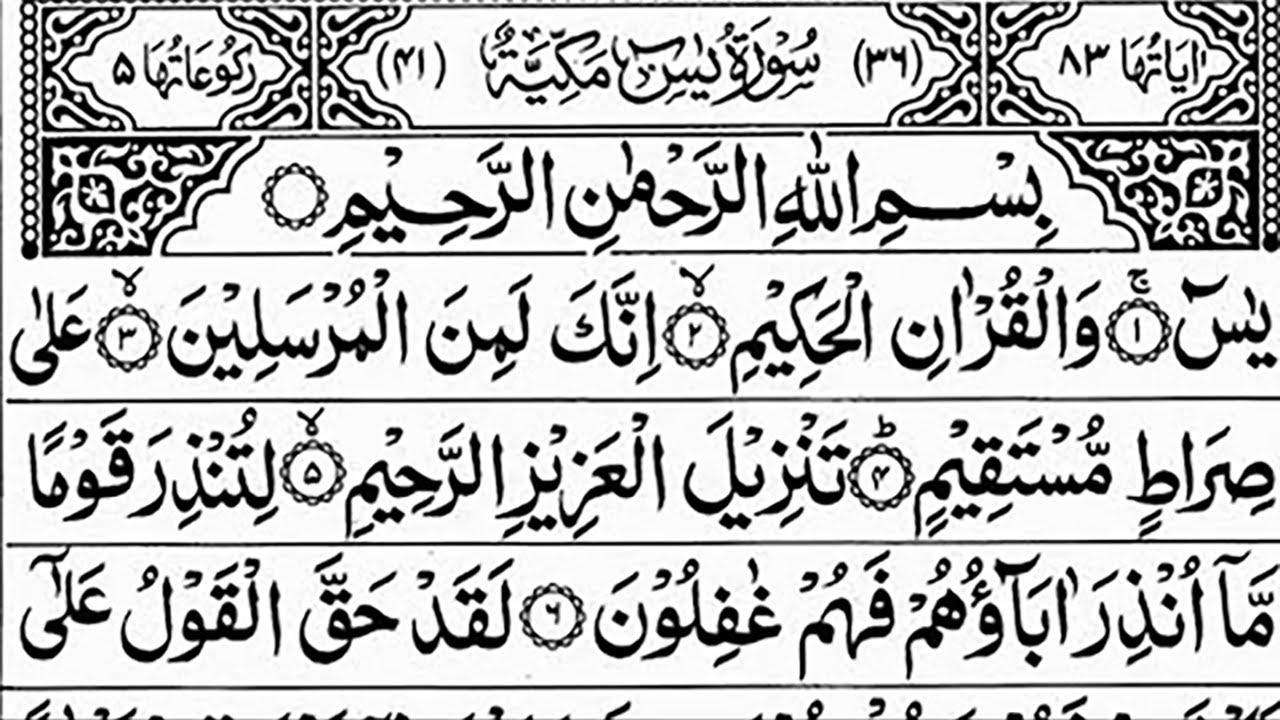 اٰيَاتُهَا ٨٣ (٣٦) سُوْرَةُ يٰسٓ مَكِّيَّةٌ (٤١) رُكُوْعَاتُهَا ٥
بِسْمِ اللّٰهِ الرَّحْمٰنِ الرَّحِيْمِ
يٰسٓ ۚ﴿١﴾ وَالْقُرْاٰنِ الْحَكِيْمِ ۙ﴿٢﴾ اِنَّكَ لَمِنَ الْمُرْسَلِيْنَ ۙ﴿٣﴾ عَلٰى
صِرَاطٍ مُّسْتَقِيْمٍ ؕ﴿۴﴾ تَنْزِيْلَ الْعَزِيْزِ الرَّحِيْمِ ۙ﴿۵﴾ لِتُنْذِرَ قَوْمًا
مَّاۤ اُنْذِرَ اٰبَآؤُهُمْ فَهُمْ غٰفِلُوْنَ ﴿۶﴾ لَقَدْ حَقَّ الْقَوْلُ عَلٰۤى